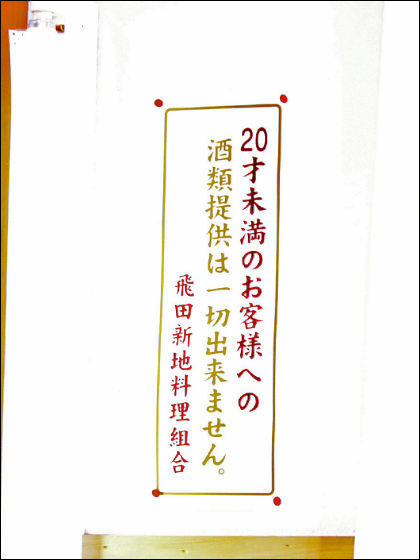 20才未満のお客様への
酒類提供は一切出来ません。
飛田新地料理組合